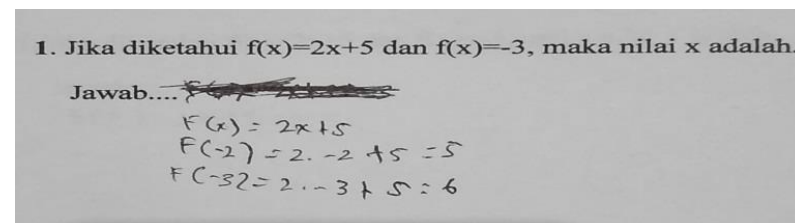 1. Jika diketahui f(x)=2x+5 dan f(x)=-3, maka nilai x adalah.
Jawab....
F(x) = 2x+5
F(-2) = 2. -2 +5 = 5
F(-3) = 2. - 3 + 5 = 6